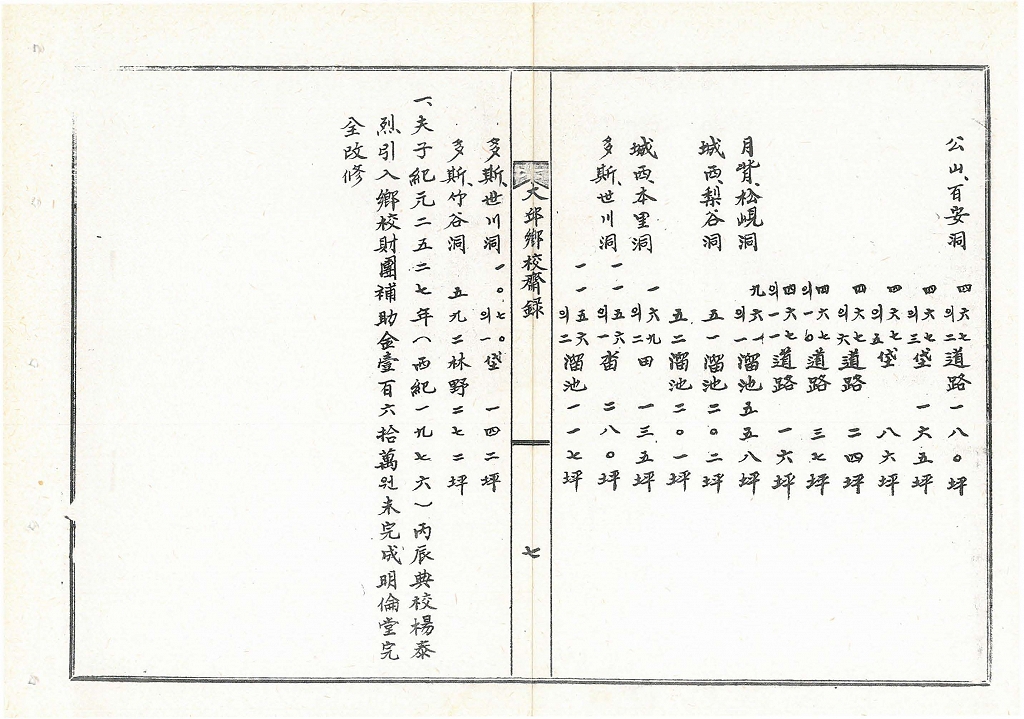 公山、百安洞 四六七의二 道路 一八〇坪
四六七의三 垈 一六五坪
四六七의五 垈 八六坪
四六七의六 道路 二四坪
四六七의一〇 道路 三七坪
四六七의一一 道路 一六坪
月背、松峴洞 九六一의一 溜池 五五八坪
城西、梨谷洞 五一 溜池 二〇二坪
五二 溜池 二〇一坪
城西、本里洞 一六九二 田 一三五坪
多斯、世川洞 一一五六의一 畓 二八〇坪
一一五六의二 溜池 一一七坪
大邱鄕校齋錄 七
多斯、世川洞 一〇七〇의一 垈 一四二坪
多斯、竹谷洞 五九二 林野 二七二坪
一、夫子紀元二五二七年(西紀一九七六)丙辰典校楊泰
烈引入鄕校財團補助金壹百六拾萬원未完成明倫堂完
全改修